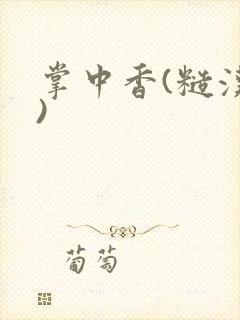 掌中香(糙汉
)
葡萄